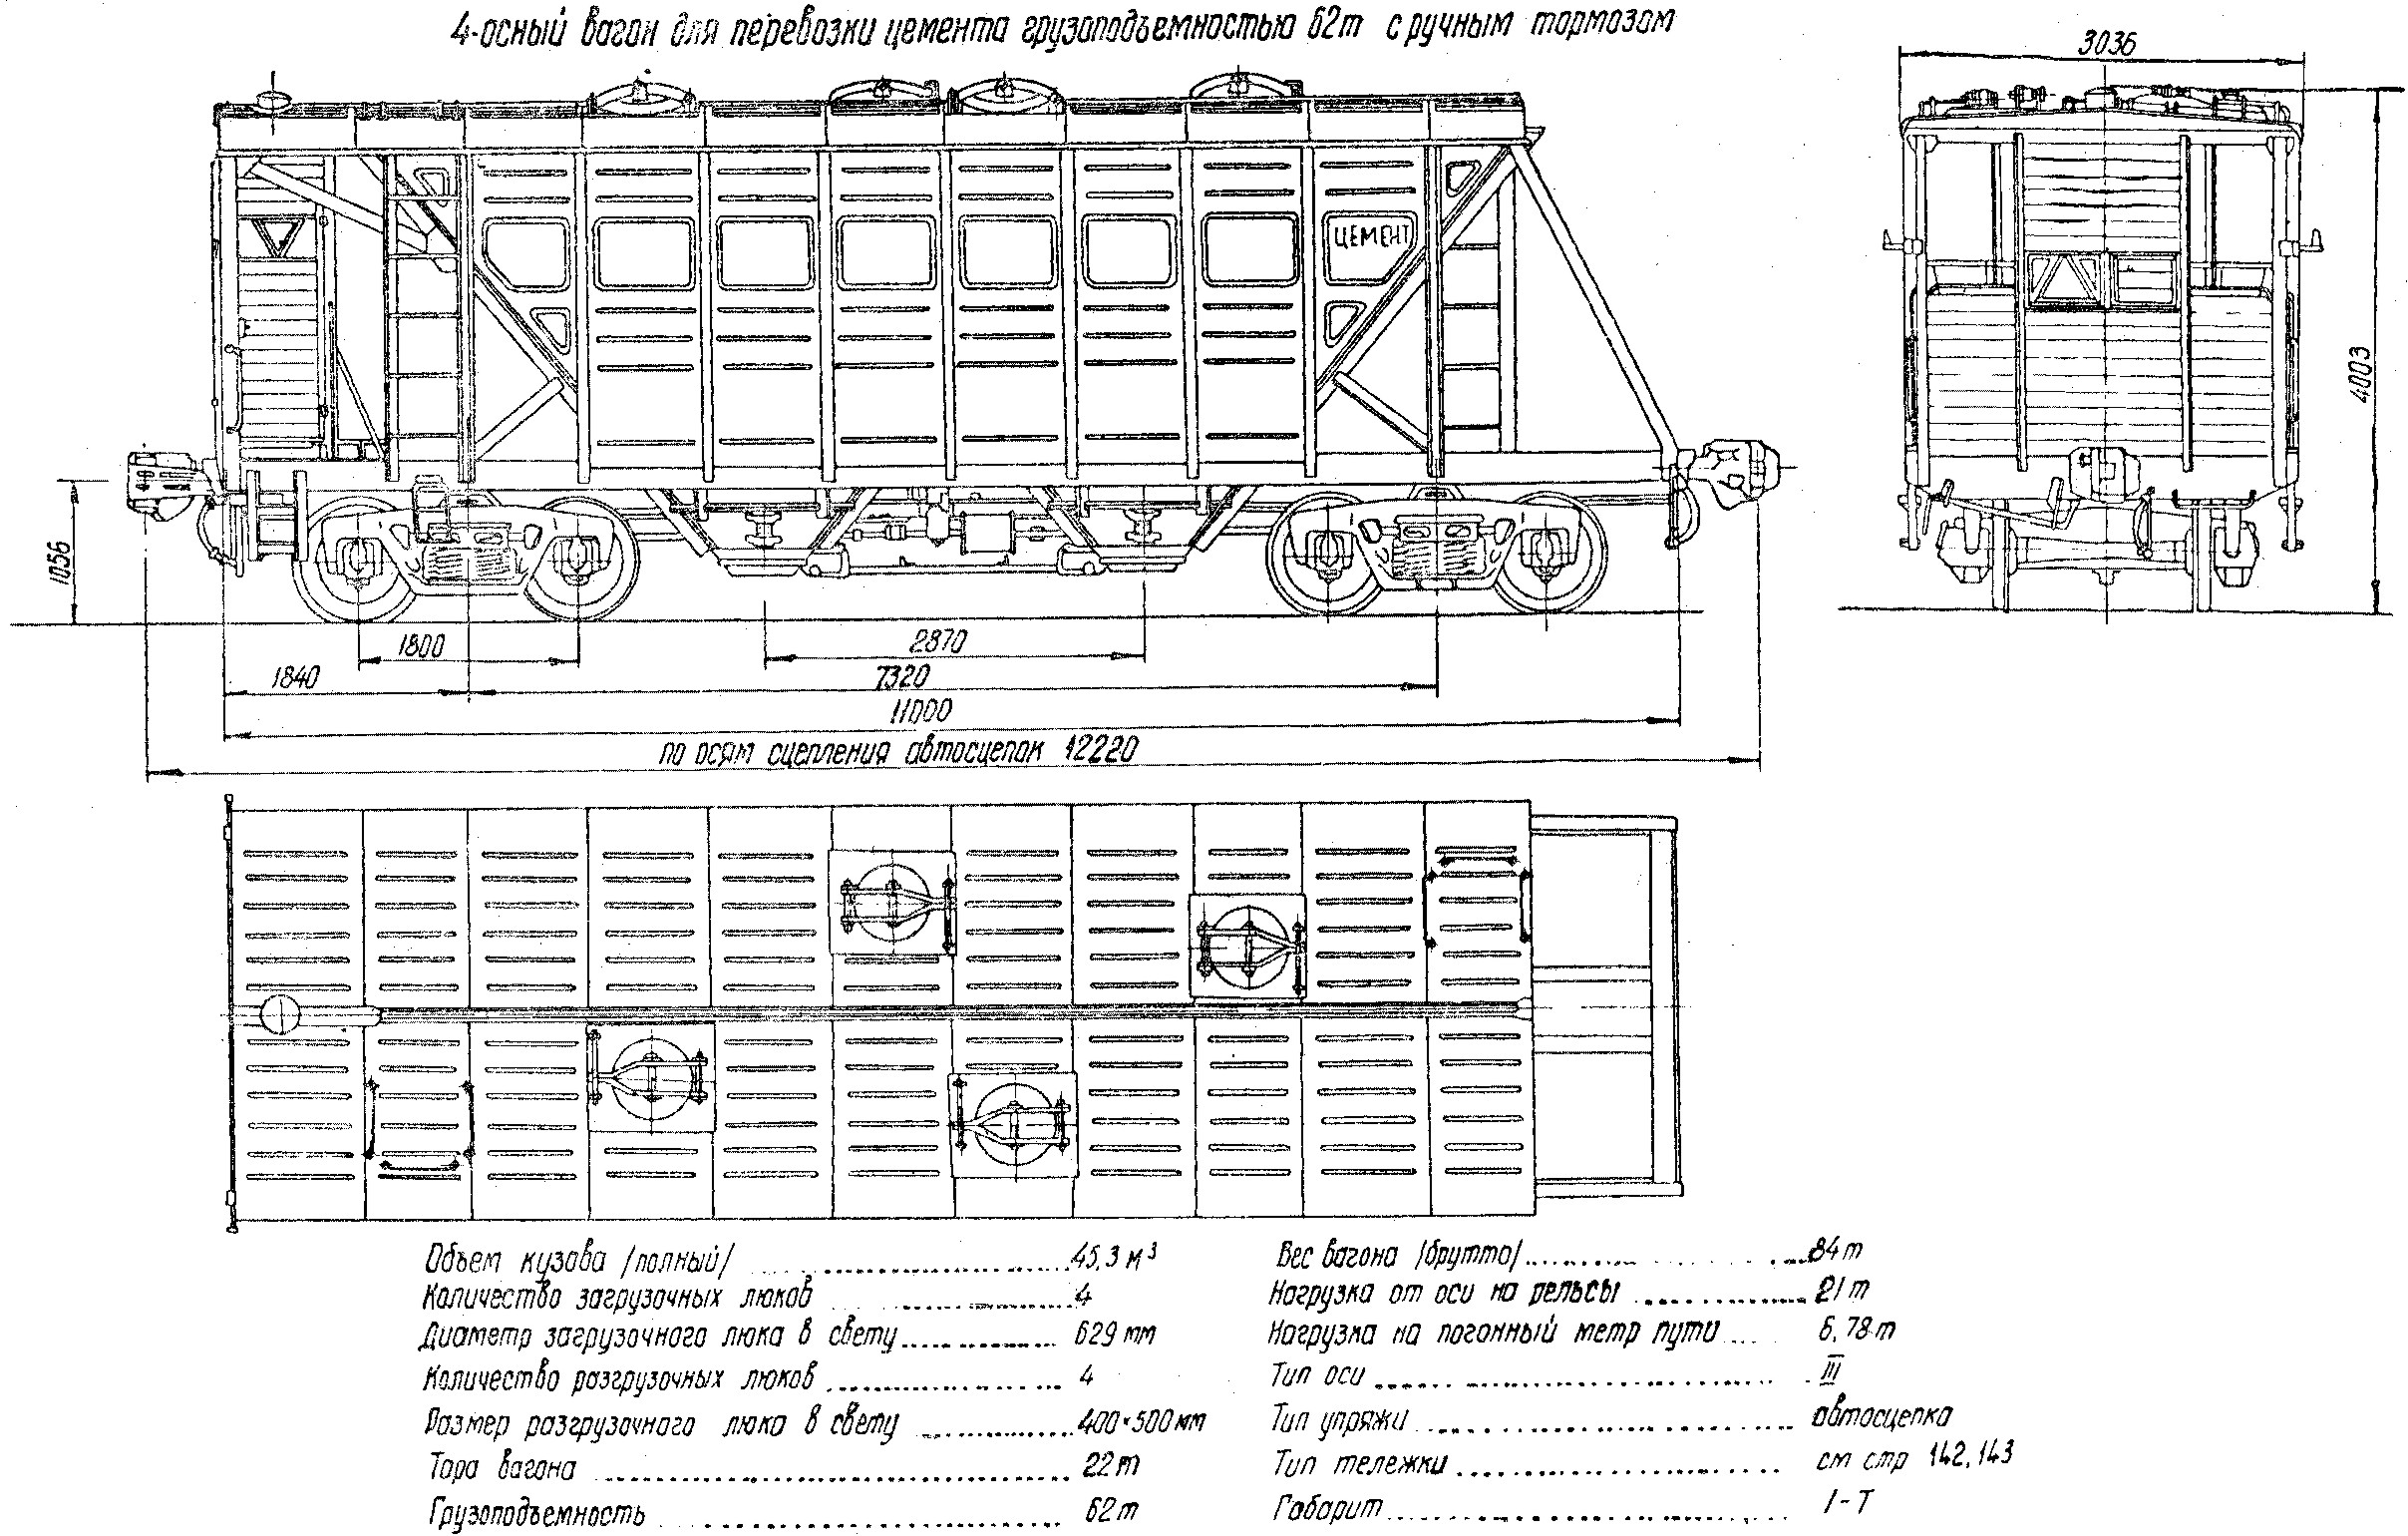 4-осный вагон для перевозки цемента грузоподъемностью 62т с ручным тормозом
3036
ЦЕМЕНТ
4003
1056
1800
2870
1840
7320
11000
по осям сцепления автосцепок 12220
Объем кузова /полный/ 45,3 м³
Количество загрузочных люков 4
Диаметр загрузочного люка в свету 629 мм
Количество разгрузочных люков 4
Размер разгрузочного люка в свету 400×500 мм
Тара вагона 22т
Грузоподъемность 62т
Вес вагона /брутто/ 84т
Нагрузка от оси на рельсы 21т
Нагрузка на погонный метр пути 6,78т
Тип оси III
Тип упряжи автосцепка
Тип тележки см стр 142,143
Габарит 1-Т